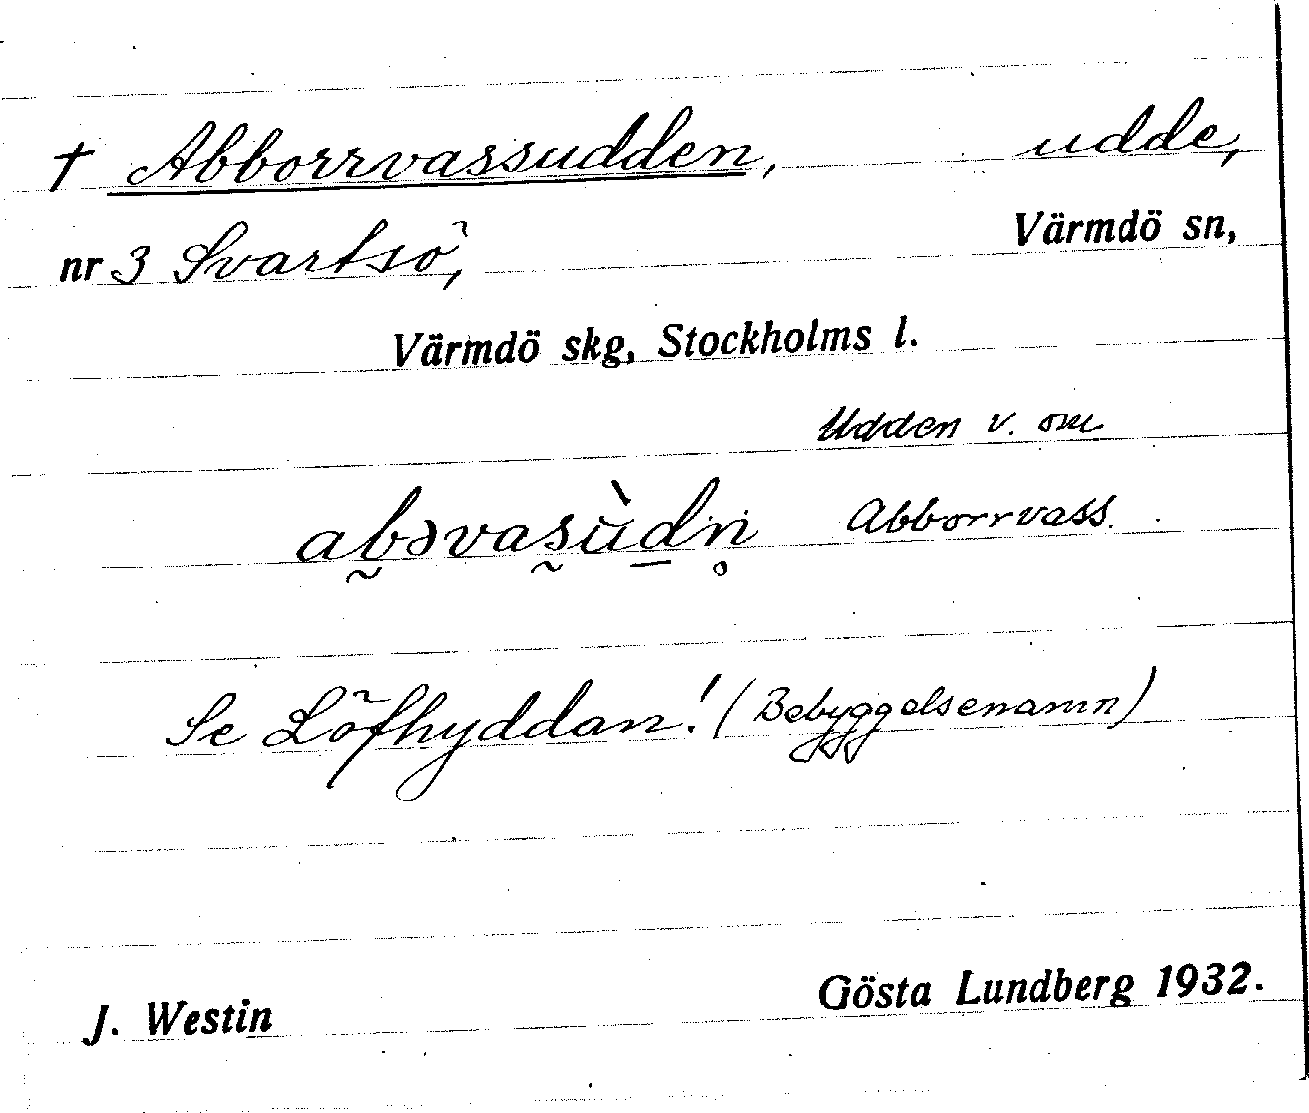 † Abborrvassudden, udde,
nr 3 Svartsö, Värmdö sn,
Värmdö skg, Stockholms l.
Udden v. om
ab̰əvas̰ùd̲n̥ Abborrvass.
Se Löfhyddan! (Bebyggelsenamn)
J. Westin Gösta Lundberg 1932.